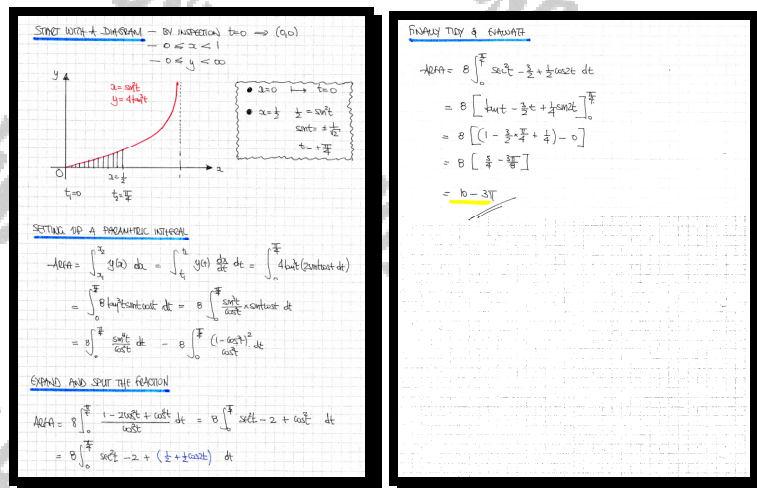 START WITH A DIAGRAM – BY INSPECTION t=0 ⟹ (0,0)
– 0 ≤ x < 1
– 0 ≤ y < ∞
y
x = sin²t
y = 4tan³t
O
x
x = 1/2
t₁=0 t₂=π/4
• x=0 ⟼ t=0
• x=1/2 1/2 = sin²t
sint = ± 1/√2
t = + π/4
SETTING UP A PARAMETRIC INTEGRAL
AREA = ∫_{x₁}^{x₂} y(x) dx = ∫_{t₁}^{t₂} y(t) dx/dt dt = ∫_0^{π/4} 4tan³t (2sintcost dt)
= ∫_0^{π/4} 8tan³t sintcost dt = 8 ∫_0^{π/4} sin³t/cos³t × sintcost dt
= 8 ∫_0^{π/4} sin⁴t/cos²t dt = 8 ∫_0^{π/4} (1-cos²t)²/cos²t dt
EXPAND AND SPLIT THE FRACTION
AREA = 8 ∫_0^{π/4} (1 - 2cos²t + cos⁴t)/cos²t dt = 8 ∫_0^{π/4} sec²t - 2 + cos²t dt
= 8 ∫_0^{π/4} sec²t - 2 + (1/2 + 1/2 cos2t) dt
FINALLY TIDY & EVALUATE
AREA = 8 ∫_0^{π/4} sec²t - 3/2 + 1/2 cos2t dt
= 8 [tant - 3/2 t + 1/4 sin2t]_0^{π/4}
= 8 [(1 - 3/2 × π/4 + 1/4) - 0]
= 8 [5/4 - 3π/8]
= 10 - 3π